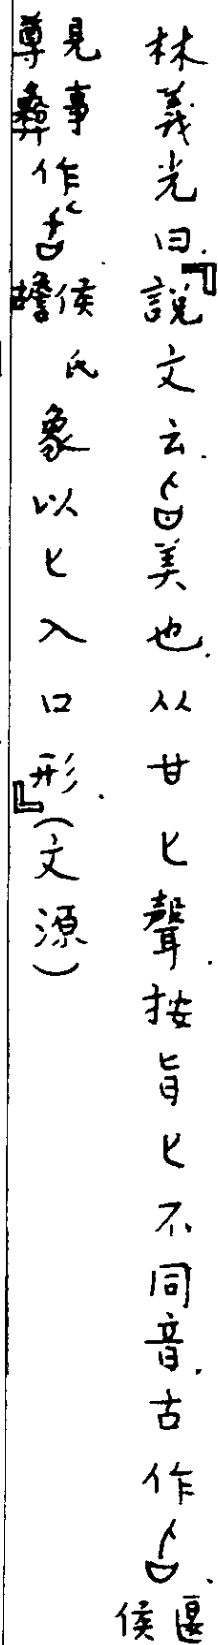 林義光曰.『說文云.美也.从甘匕聲.按旨匕不同音.古作.匽侯
見事尊彝作侯氏象以匕入口形.』(文源)